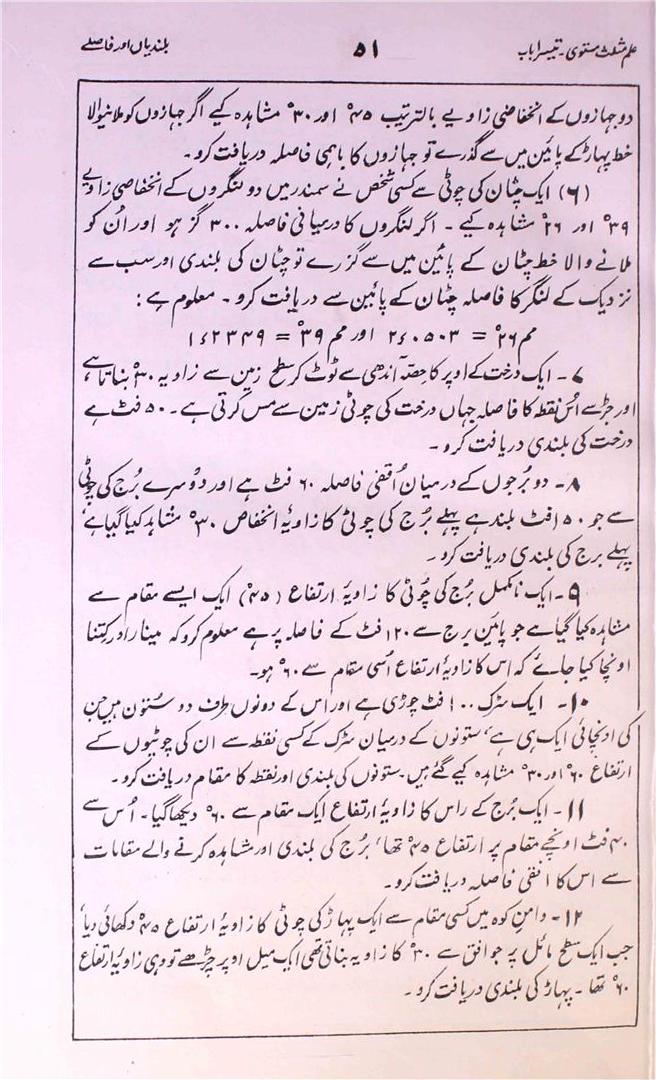 علم مثلث مستوی۔ تیسرا باب ۵۱ بلندیاں اور فاصلے
دو جہازوں کے انخفاضی زاویے بالترتیب ۴۵° اور ۳۰° مشاہدہ کیے اگر جہازوں کو ملانیوالا
خط پہاڑ کے پائین میں سے گذرے تو جہازوں کا باہمی فاصلہ دریافت کرو۔
(۶) ایک چٹان کی چوٹی سے کسی شخص نے سمندر میں دو لنگروں کے انخفاضی زاویے
۳۹° اور ۲۶° مشاہدہ کیے۔ اگر لنگروں کا درمیانی فاصلہ ۳۰۰ گز ہو اور اُن کو
ملانے والا خط چٹان کے پائین میں سے گزرے تو چٹان کی بلندی اور سب سے
نزدیک کے لنگر کا فاصلہ چٹان کے پائین سے دریافت کرو۔ معلوم ہے:
مم ۲۶° = ۲٫۰۵۰۳ اور مم ۳۹° = ۱٫۲۳۴۹
۷۔ ایک درخت کے اوپر کا حصہ آندھی سے ٹوٹ کر سطح زمین سے زاویہ ۳۰° بناتا ہے
اور جڑ سے اُس نقطہ کا فاصلہ جہاں درخت کی چوٹی زمین سے مس کرتی ہے۔ ۵۰ فٹ ہے
درخت کی بلندی دریافت کرو۔
۸۔ دو بُرجوں کے درمیان اُفقی فاصلہ ۶۰ فٹ ہے اور دُوسرے بُرج کی چوٹی
سے جو ۱۵۰ فٹ بلند ہے پہلے بُرج کی چوٹی کا زاویۂ انخفاض ۳۰° مشاہدہ کیا گیا ہے،
پہلے برج کی بلندی دریافت کرو۔
۹۔ ایک نامکمل بُرج کی چوٹی کا زاویۂ ارتفاع (۴۵°) ایک ایسے مقام سے
مشاہدہ کیا گیا ہے جو پائین برج سے ۱۲۰ فٹ کے فاصلہ پر ہے معلوم کرو کہ مینار اور کتنا
اونچا کیا جائے کہ اس کا زاویۂ ارتفاع اُسی مقام سے ۶۰° ہو۔
۱۰۔ ایک سڑک ۱۰۰ فٹ چوڑی ہے اور اس کے دونوں طرف دو ستون ہیں جن
کی اونچائی ایک ہی ہے، ستونوں کے درمیان سڑک کے کسی نقطہ سے ان کی چوٹیوں کے
ارتفاع ۶۰° اور ۳۰° مشاہدہ کیے گئے ہیں۔ ستونوں کی بلندی اور نقطہ کا مقام دریافت کرو۔
۱۱۔ ایک بُرج کے راس کا زاویۂ ارتفاع ایک مقام سے ۶۰° دیکھا گیا۔ اُس سے
۴۰ فٹ اونچے مقام پر ارتفاع ۴۵° تھا، بُرج کی بلندی اور مشاہدہ کرنے والے مقامات
سے اس کا افقی فاصلہ دریافت کرو۔
۱۲۔ دامنِ کوہ میں کسی مقام سے ایک پہاڑ کی چوٹی کا زاویۂ ارتفاع ۴۵° دکھائی دیا،
جب ایک سطح مائل پر جو افق سے ۳۰° کا زاویہ بناتی تھی ایک میل اوپر چڑھے تو وہی زاویۂ ارتفاع
۶۰° تھا۔ پہاڑ کی بلندی دریافت کرو۔